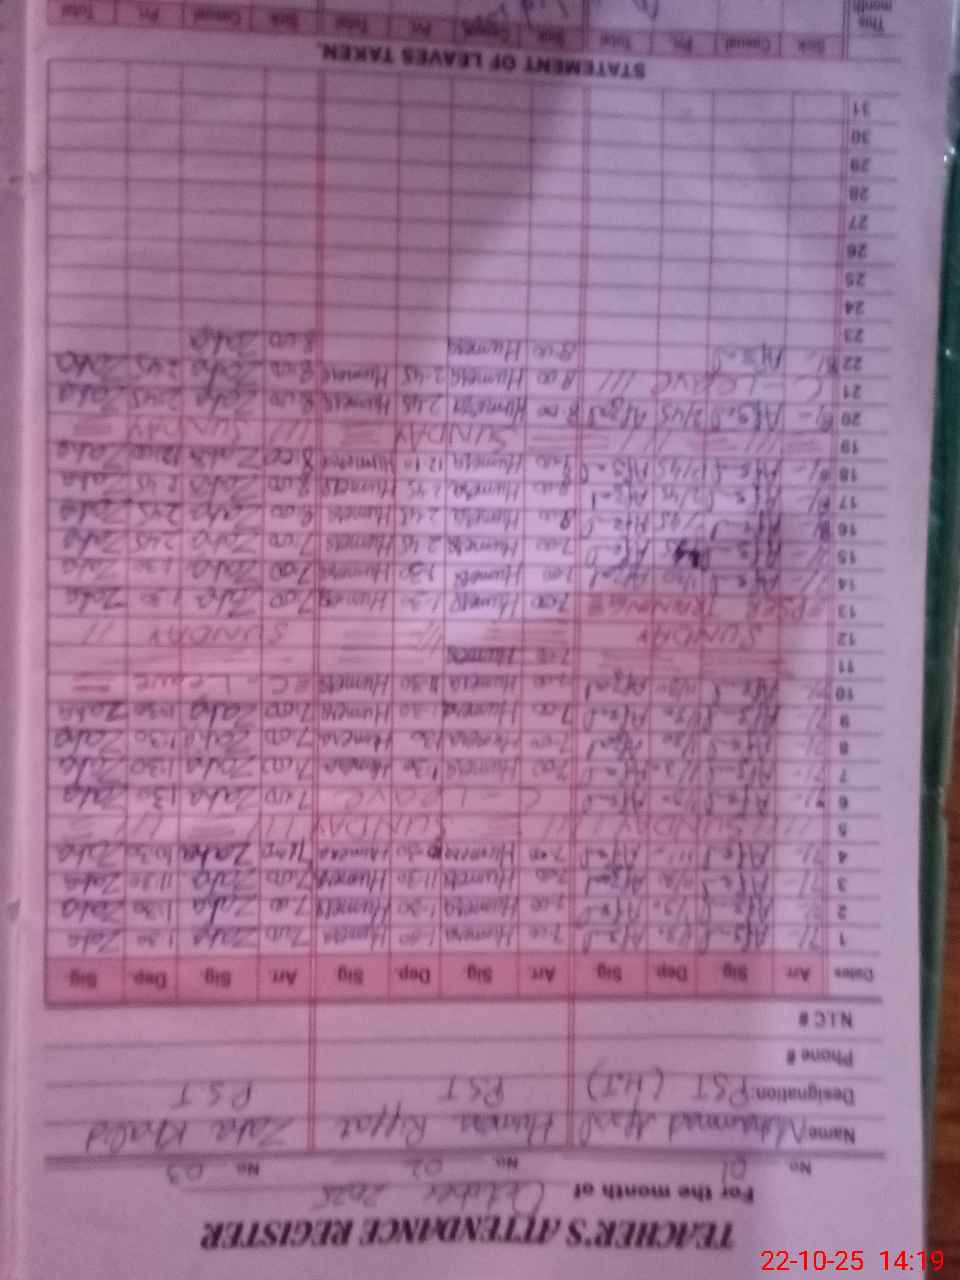 TEACHER'S ATTENDANCE REGISTER
For the month of October 2025
No. 01 No. 02 No. 03
Name Muhammad Afzal Humera Riffat Zaha Khalid
Designation: PST (H.T) P.S.T P.S.T
Phone #
N.I.C #
Dates Arr Sig Dep Sig Arr Sig. Dep. Sig Arr Sig Dep. Sig.
1 7/- Afzal Afzal 7:00 Humera Humera 7:00 Zaha 1:30 Zaha
2 7/- Afzal Afzal 7:00 Humera 1:30 Humera 7:00 Zaha 1:30 Zaha
3 7/- Afzal Afzal 7:00 Humera 11:30 Humera 7:00 Zaha 11:30 Zaha
4 7/- Afzal Afzal 7:00 Humera 10:30 Humera Zaha 10:30 Zaha
5 SUNDAY SUNDAY SUNDAY
6 7/- Afzal Afzal C - LEAVE 7:00 Zaha 1:30 Zaha
7 7/- Afzal Afzal 7:00 Humera 1:30 Humera 7:00 Zaha 1:30 Zaha
8 7/- Afzal Afzal 7:00 Humera 1:30 Humera 7:00 Zaha 1:30 Zaha
9 7/- Afzal Afzal 7:00 Humera 1:30 Humera 7:00 Zaha 1:30 Zaha
10 7/- Afzal Afzal 7:00 Humera 11:30 Humera C - Leave
11 Humera
12 SUNDAY SUNDAY
13 TRANING 7:00 Humera 1:30 Humera 7:00 Zaha 1:30 Zaha
14 7/- Afzal Afzal 7:00 Humera 1:30 Humera 7:00 Zaha 1:30 Zaha
15 Afzal Afzal 7:00 Humera 2:45 Humera 7:00 Zaha 2:45 Zaha
16 Afzal Afzal 8:00 Humera 2:45 Humera 8:00 Zaha 2:45 Zaha
17 Afzal 2/45 Afzal 8:00 Humera 2:45 Humera 8:00 Zaha 2:45 Zaha
18 Afzal Afzal 8:00 Humera 12:10 Humera 8:00 Zaha 12:00 Zaha
19 SUNDAY SUNDAY
20 8/- Afzal 2/45 Afzal 8:00 Humera 2:45 Humera 8:00 Zaha 2:45 Zaha
21 C - LEAVE 8:00 Humera 2:45 Humera 8:00 Zaha 2:45 Zaha
22 8/- Afzal 8:00 Humera 8:00 Zaha
23
24
25
26
27
28
29
30
31
STATEMENT OF LEAVES TAKEN.
Sick Casual Pri. Total Sick Casual Pri. Total Sick Casual Pri. Total
This month
22-10-25 14:19